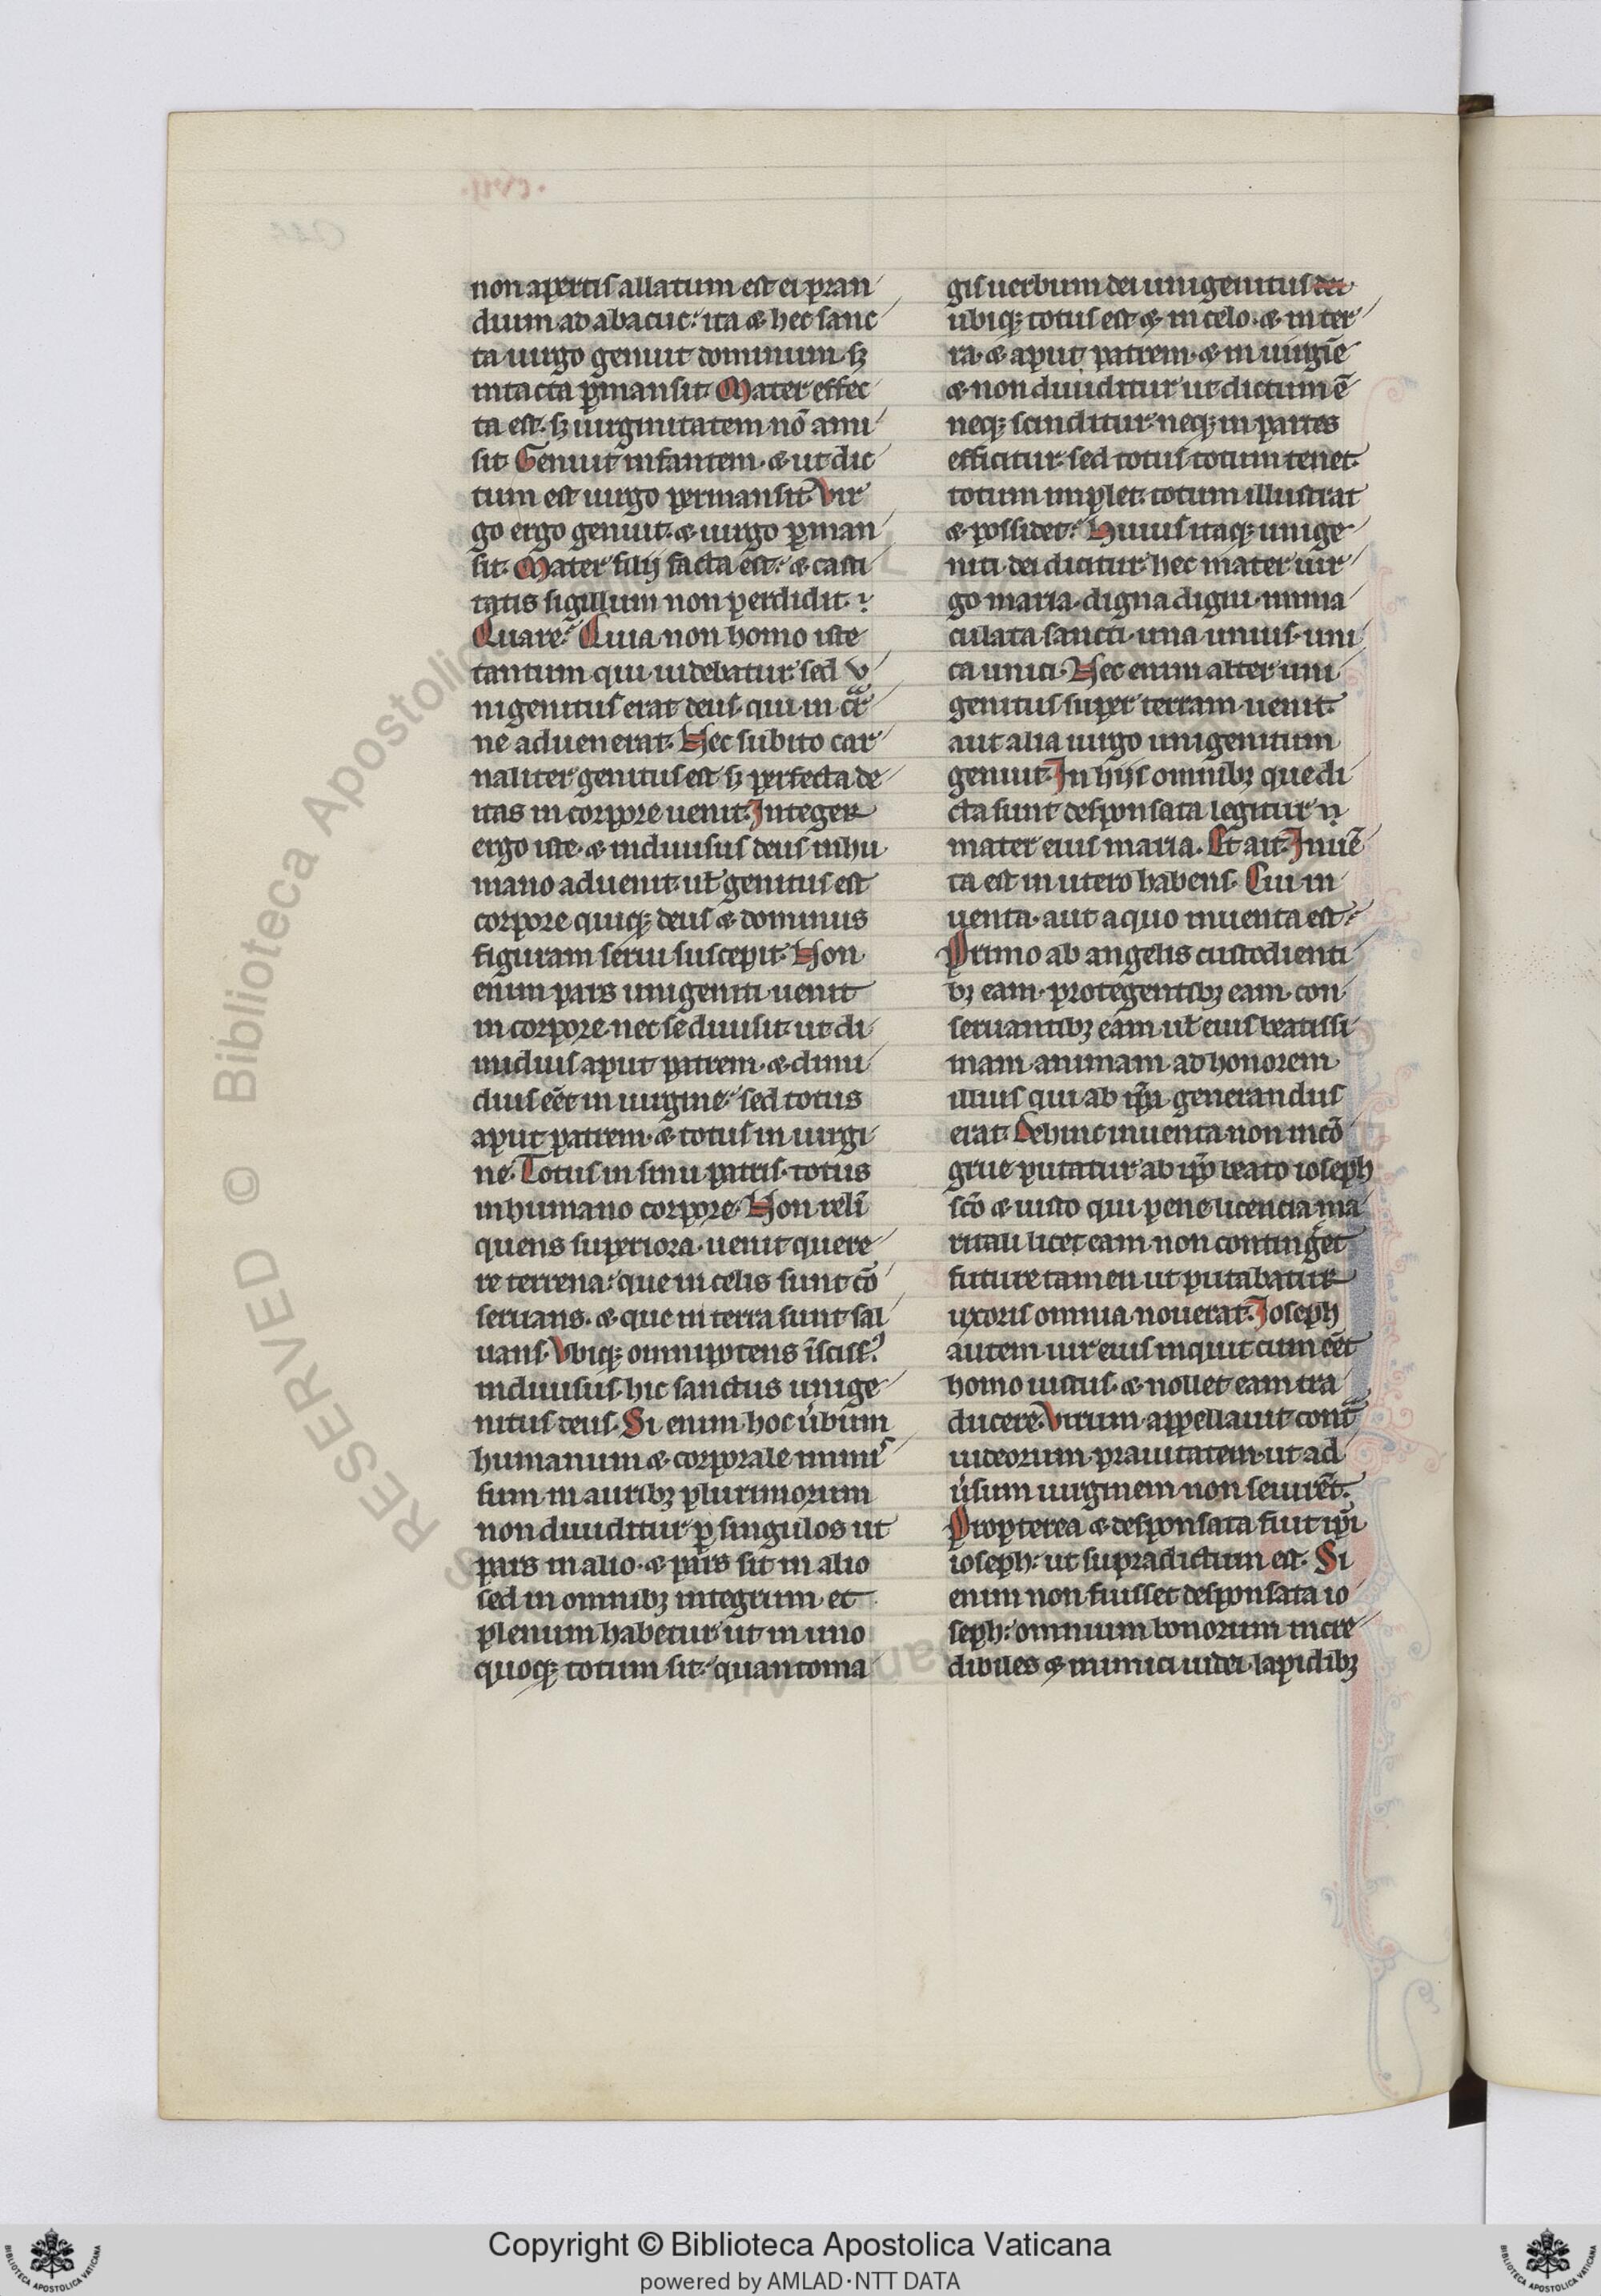 non apertis allatum est ei pran
dium ad abacuc. ita & hec sanc
ta uirgo genuit dominum. sȝ
intacta ꝑmansit. Mater effec
ta est. sȝ uirginitatem nō ami
sit. Genuit infantem. & ut dic
tum est uirgo permansit. Vir
go ergo genuit. & uirgo ꝑman
sit. Mater filij facta est. & casti
tatis sigillum non perdidit.
Quare? Quia non homo iste
tantum qui uidebatur. sed v
nigenitus erat deus. qui in car
ne aduenerat. Hec subito car
naliter genitus est sȝ perfecta de
itas in corpore uenit. Integer
ergo iste. & indiuisus deus in hu
mano aduenit. ut genitus est
corpore quiqȝ deus & dominus
figuram serui suscepit. Non
enim pars unigeniti uenit
in corpore. nec se diuisit. ut di
midius aput patrem. & dimi
dius eēt in uirgine. sed totus
aput patrem. & totus in uirgi
ne. Totus in sinu patris. totus
in humano corpore. Non reli
quens superiora. uenit quere
re terrena. que in celis sunt cō
seruans. & que in terra sunt sal
uans. Vbiqȝ omnipotens
indiuisus. hic sanctus unige
nitus deus. Si enim hoc ūbum
humanum & corporale
sum in auribȝ plurimorum
non diuiditur ꝑ singulos ut
pars in alio. & pars sit in alio
sed in omnibȝ integrum et
plenum habetur ut in uno
quoqȝ totum sit. quanto ma
gis uerbum dei unigenitus dei
ubiqȝ totus est & in celo. & in ter
ra. & aput patrem. & in uirgīe
& non diuiditur ut dictum ē
neqȝ scinditur. neqȝ in partes
efficitur. sed totus totum tenet.
totum implet. totum illustrat
& possidet. Huius itaqȝ unige
niti dei dicitur hec mater uir
go maria. digna digni. inma
culata sancti. una unius. uni
ca unici. Nec enim alter uni
genitus super terram uenit.
aut alia uirgo unigenitum
genuit. In hijs omnibȝ que di
cta sunt desponsata legitur
mater eius maria. Et ait. Inuē
ta est in utero habens. Cui in
uenta. aut a quo inuenta est?
Primo ab angelis custodienti
bȝ eam. protegentibȝ eam. con
seruantibȝ eam. ul̄ eius beatissi
mam animam. ad honorem
illius qui ab ip̄a generandus
erat. Dehinc inuenta non incō
grue putatur ab ip̄o beato ioseph
scō & iusto qui pene licencia ma
ritali licet eam non contingeret
future tamen ut putabatur
uxoris omnia nouerat. Ioseph
autem uir eius inquit cum eēt
homo iustus. & nollet eam tra
ducere. Virum appellauit contra
iudeorum prauitatem. ut ad
ūsum uirginem non seuirēt.
Propterea & desponsata fuit ip̄i
ioseph. ut supradictum est. Si
enim non fuisset desponsata io
seph. omnium bonorum incre
dibiles & inimici iudei. lapidibȝ
RESERVED © Biblioteca Apostolica
Copyright © Biblioteca Apostolica Vaticana
powered by AMLAD·NTT DATA
BIBLIOTECA APOSTOLICA VATICANA
BIBLIOTECA APOSTOLICA VATICANA